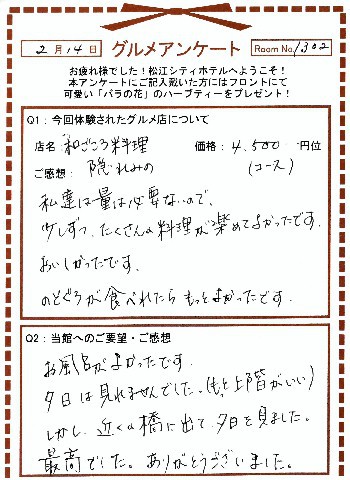 2月14日 グルメアンケート Room No. 1302
お疲れ様でした！松江シティホテルへようこそ！
本アンケートにご記入戴いた方にはフロントにて
可愛い「バラの花」のハーブティーをプレゼント！
Q1：今回体験されたグルメ店について
店名：和ごころ料理 価格：4,500円位
ご感想： 隠れみの (コース)
私達は量は必要ないので、
少しずつ、たくさんの料理が楽めてよかったです。
おいしかったです。
のどぐろが食べれたらもっとよかったです。
Q2：当館へのご要望・ご感想
お風呂がよかったです。
夕日は見れませんでした。(もっと上階がいい)
しかし、近くの橋に出て、夕日を見ました。
最高でした。ありがとうございました。